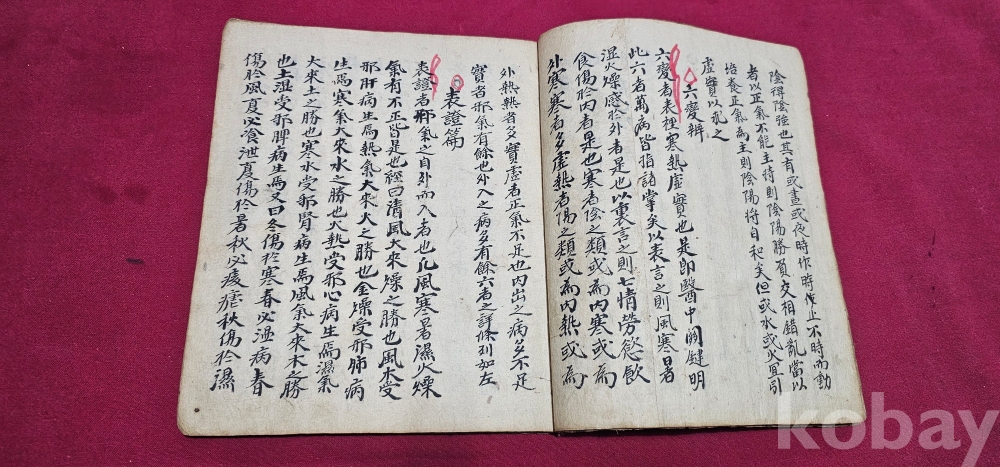 陰得陰強也其有或晝或夜時作時止不時而動
者以正氣不能主持則陰陽勝負交相錯亂當以
培養正氣為主則陰陽將自和矣但或水或火宜引
虛實以乱之
六變辨
六變者表裡寒熱虛實也是即醫中關鍵明
此六者萬病皆指諸掌矣以表言之則風寒暑
湿火燥感於外者是也以裏言之則七情勞慾飲
食傷於內者是也寒者陰之類或為內寒或為
外寒寒者多虛熱者陽之類或為內熱或為
外熱熱者多實虛者正氣不足也內出之病多不足
實者邪氣有餘也外入之病多有餘六者之詳條列如左
表證篇
表證者邪氣之自外而入者也凡風寒暑濕火燥
氣有不正皆是也經曰清風大來燥之勝也風木受
邪肝病生焉熱氣大來火之勝也金燥受邪肺病
生焉寒氣大來水之勝也火熱受邪心病生焉濕氣
大來土之勝也寒水受邪腎病生焉風氣大來木之勝
也土湿受邪脾病生焉又曰冬傷於寒春必温病春
傷於風夏必飧泄夏傷於暑秋必痎瘧秋傷於濕
kobay